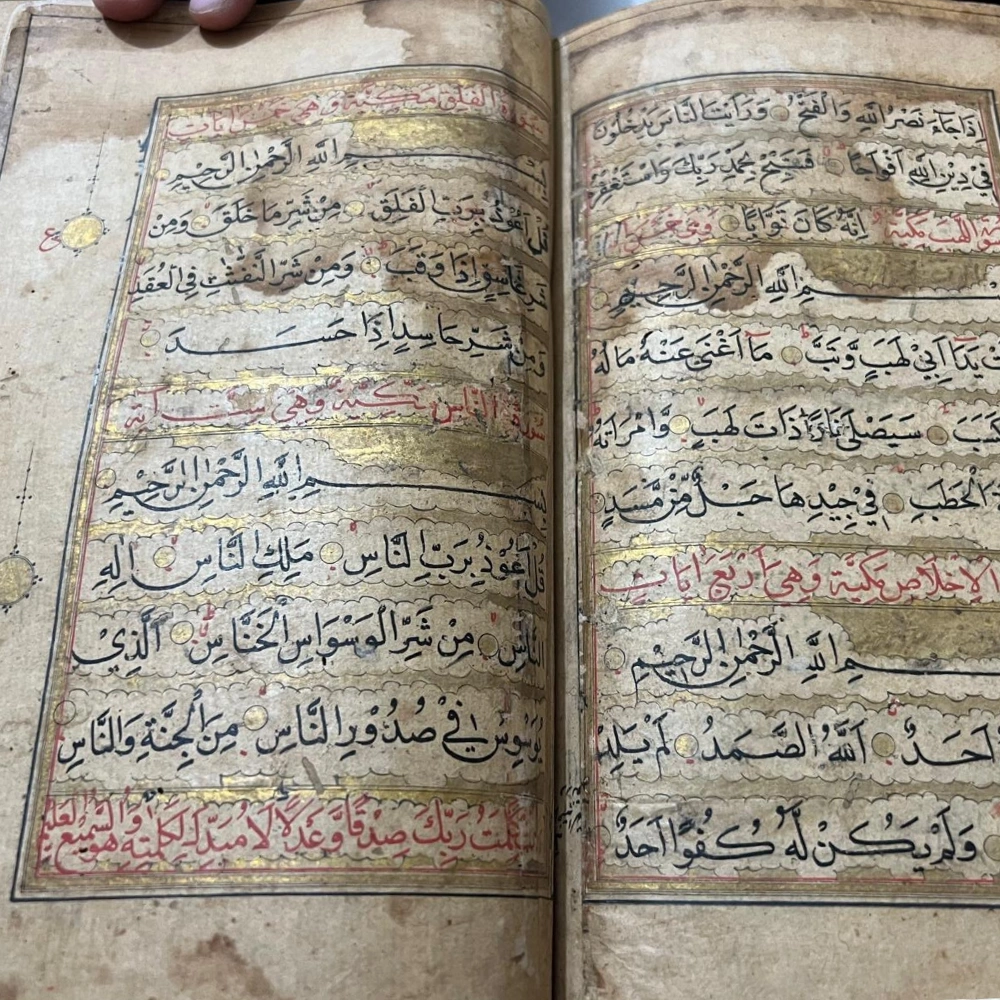 إِذَا جَاءَ نَصْرُ اللّٰهِ وَالْفَتْحُ وَرَاَيْتَ النَّاسَ يَدْخُلُونَ
فِي دِيْنِ اللّٰهِ اَفْوَاجًا فَسَبِّحْ بِحَمْدِ رَبِّكَ وَاسْتَغْفِرْهُ
اِنَّهُ كَانَ تَوَّابًا سورة اللهب مكية وهي خمس
بِسْمِ اللّٰهِ الرَّحْمٰنِ الرَّحِيْمِ
تَبَّتْ يَدَا اَبِيْ لَهَبٍ وَّتَبَّ مَا اَغْنٰى عَنْهُ مَالُهُ
كَسَبَ سَيَصْلٰى نَارًا ذَاتَ لَهَبٍ وَّامْرَاَتُهُ
الْحَطَبِ فِيْ جِيْدِهَا حَبْلٌ مِّنْ مَّسَدٍ
الاخلاص مكية وهي اربع ايات
بِسْمِ اللّٰهِ الرَّحْمٰنِ الرَّحِيْمِ
اَحَدٌ اَللّٰهُ الصَّمَدُ لَمْ يَلِدْ
وَلَمْ يَكُنْ لَّهُ كُفُوًا اَحَدٌ
سورة الفلق مكية وهي خمس ايات
بِسْمِ اللّٰهِ الرَّحْمٰنِ الرَّحِيْمِ
قُلْ اَعُوْذُ بِرَبِّ الْفَلَقِ مِنْ شَرِّ مَا خَلَقَ وَمِنْ
شَرِّ غَاسِقٍ اِذَا وَقَبَ وَمِنْ شَرِّ النَّفّٰثٰتِ فِي الْعُقَدِ
وَمِنْ شَرِّ حَاسِدٍ اِذَا حَسَدَ
سورة الناس مكية وهي ست آية
بِسْمِ اللّٰهِ الرَّحْمٰنِ الرَّحِيْمِ
قُلْ اَعُوْذُ بِرَبِّ النَّاسِ مَلِكِ النَّاسِ اِلٰهِ
النَّاسِ مِنْ شَرِّ الْوَسْوَاسِ الْخَنَّاسِ الَّذِيْ
يُوَسْوِسُ فِيْ صُدُوْرِ النَّاسِ مِنَ الْجِنَّةِ وَالنَّاسِ
كلمت ربك صدقا وعدلا لا مبدل لكلمته وهو السميع العليم
ع